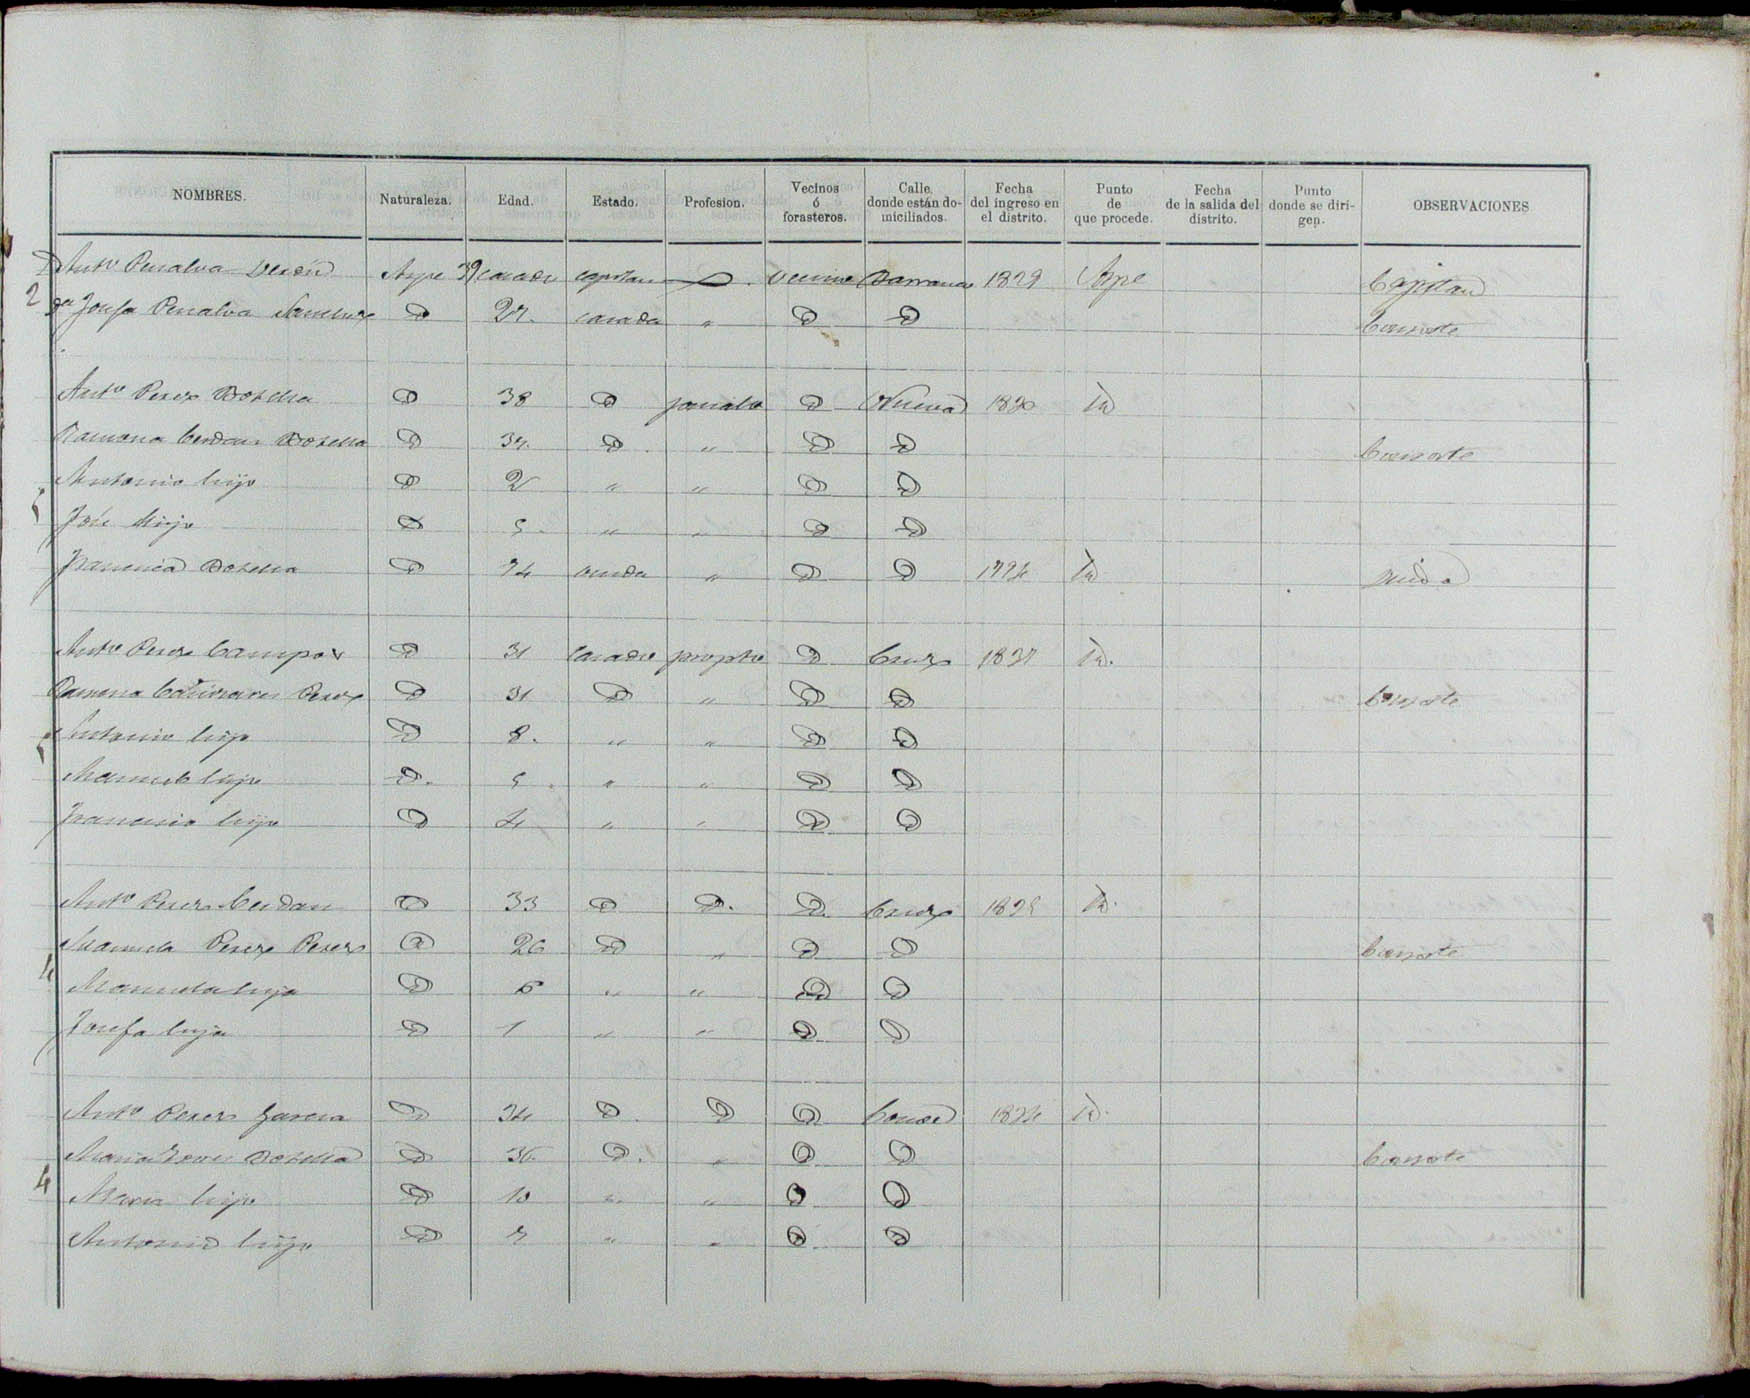 NOMBRES. Naturaleza. Edad. Estado. Profesion. Vecinos ó forasteros. Calle, donde están domiciliados. Fecha del ingreso en el distrito. Punto de que procede. Fecha de la salida del distrito. Punto donde se dirigen. OBSERVACIONES
Dn Antº Penalva Aspe 39 casado capitan vecino 1829 Aspe Capitan
2 Dª Josefa Penalva Sanchez 27. casada " Consorte
Antº Perez Botella 38 Nueva 1830 id
Ramona Cerdan Botella 37. " Consorte
Antonio hijo 2 " "
5 José hijo 5 " "
Francisca Botella 74 viuda " 1794 id viuda
Antº Perez Campos 31 casado propto Cruz 1837 id.
Ramona Cañizares Perez 31 " Consorte
5 Antonio hijo 8. " "
Manuel hijo 5 " "
Francisco hijo 4 " "
Antº Perez Cerdan 33 Cruz 1835 id.
Manuela Perez Perez 26 " Consorte
4 Manuela hija 6 " "
Josefa hija 1 " "
Antº Perez Garcia 34 1834 id.
Maria Botella 36. " Consorte
4 Maria hija 10 " "
Antonio hijo 7 " "